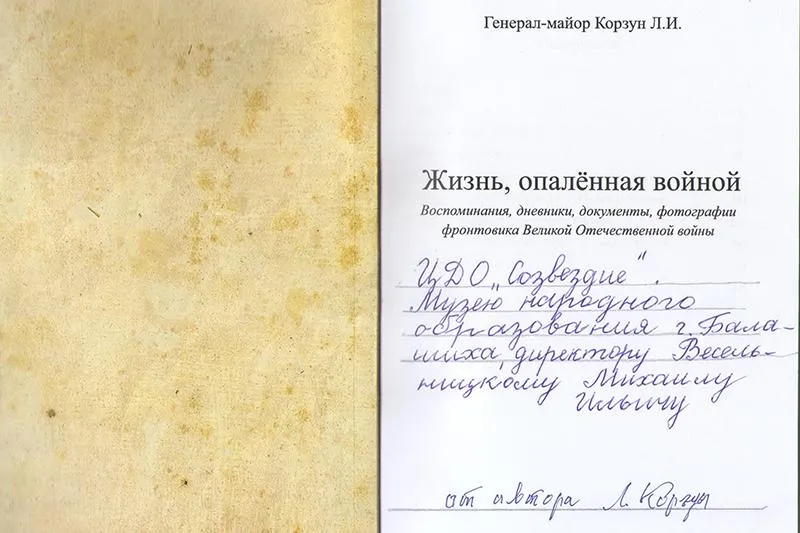 Генерал-майор Корзун Л.И.
Жизнь, опалённая войной
Воспоминания, дневники, документы, фотографии
фронтовика Великой Отечественной войны
ЦДО „Созвездие".
Музею народного
образования г. Бала-
шиха, директору Весель-
ницкому Михаилу
Ильичу
от автора Л. Корзун